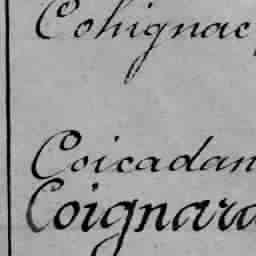 Cohignac
Coicadan
Coignard